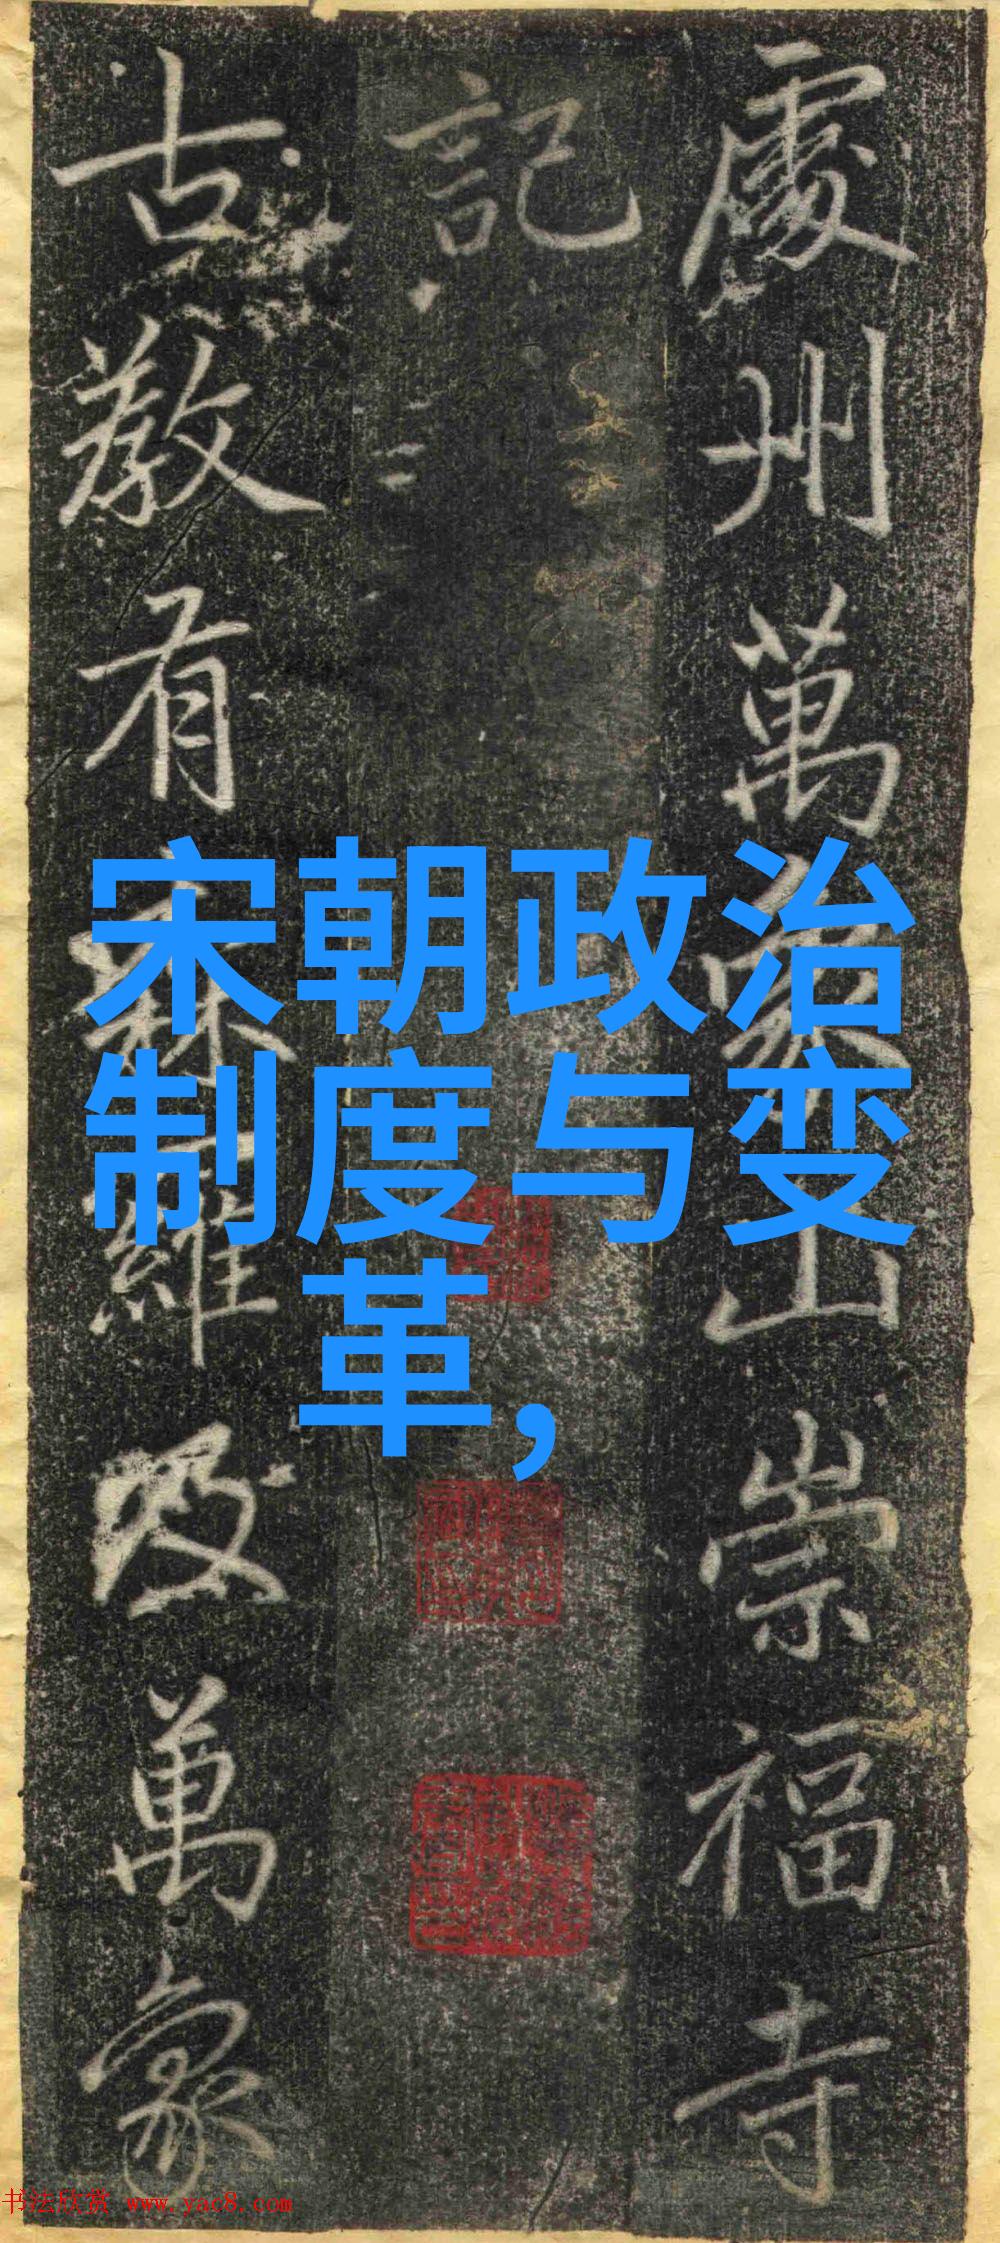 處州萬象山崇福寺
記
古教有森羅及萬象
宋朝政治
制度与变
革,
书法欣赏 www.yac8.com